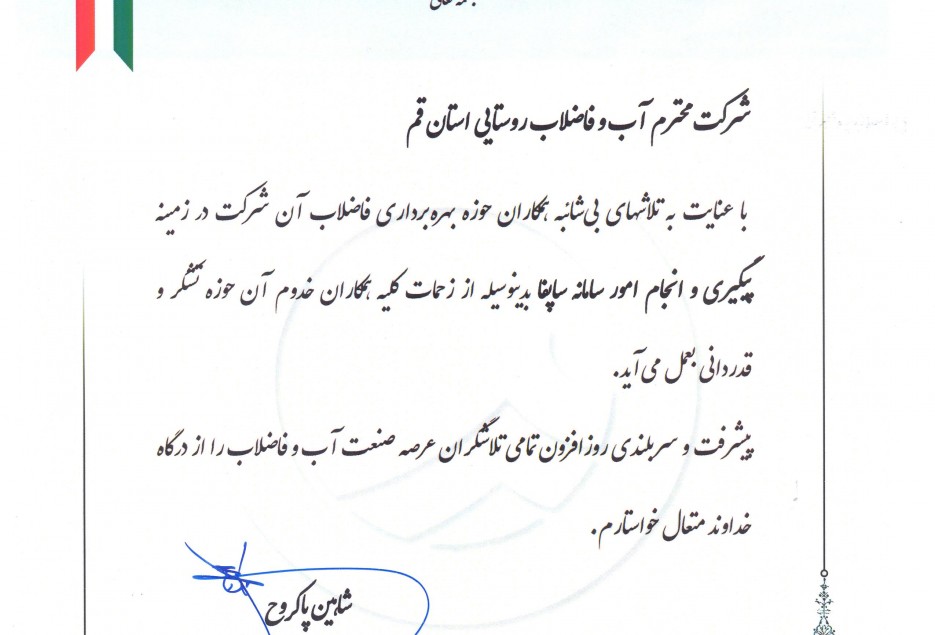 شرکت محترم آب و فاضلاب روستایی استان قم
با عنایت به تلاشهای بی‌شائبه همکاران حوزه بهره‌برداری فاضلاب آن شرکت در زمینه
پیگیری و انجام امور سامانه ساپفا بدینوسیله از زحمات کلیه همکاران خدوم آن حوزه تشکر و
قدردانی بعمل می‌آید.
پیشرفت و سربلندی روزافزون تمامی تلاشگران عرصه صنعت آب و فاضلاب را از درگاه
خداوند متعال خواستارم.
شاهین پاکروح